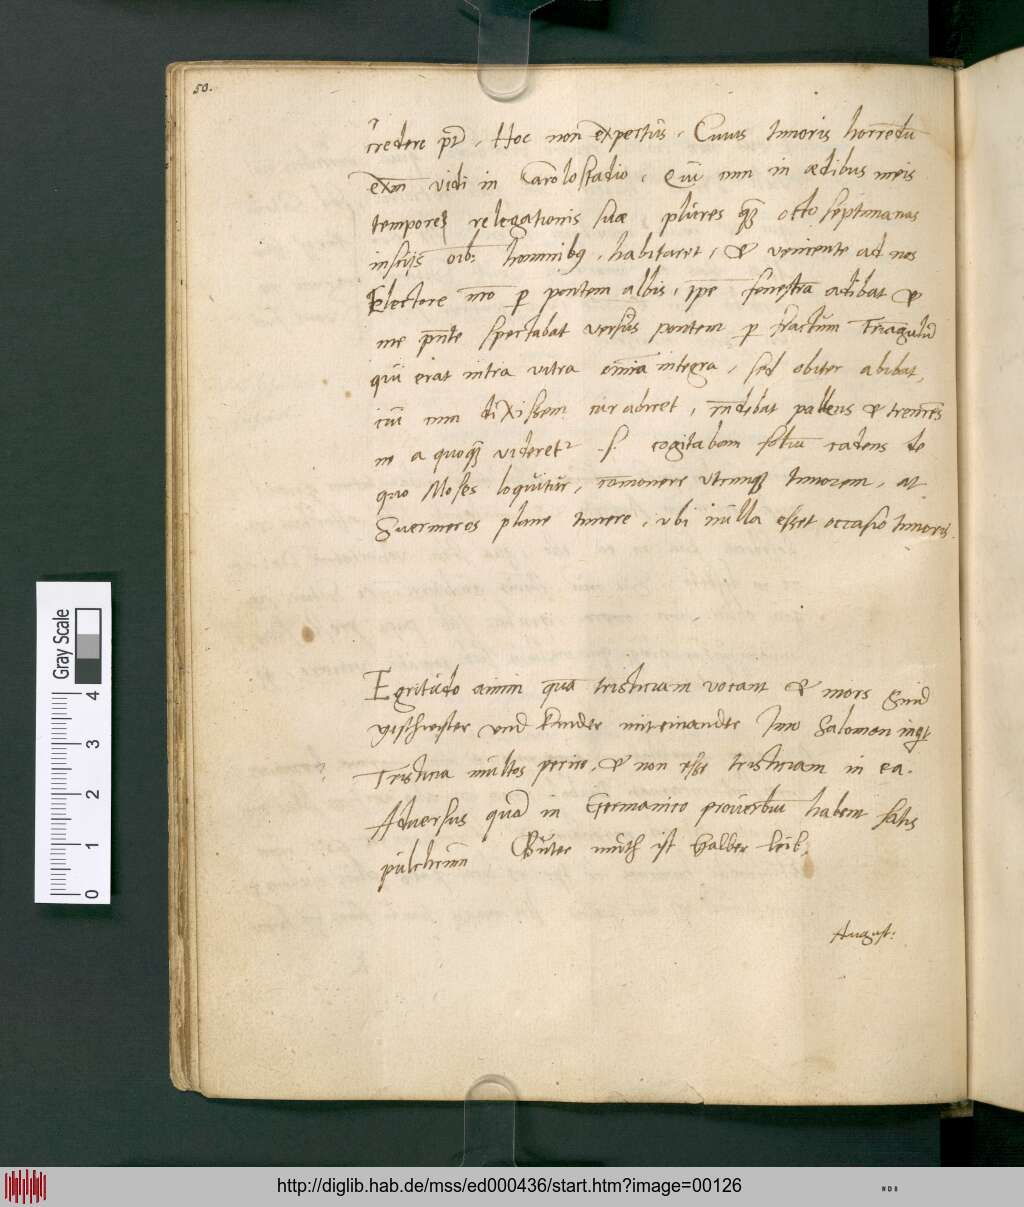 50.
credere pt̄. Hoc non expertis. Cuius timoris horrēdū
exm̄ vidi in Carolostadio, Qui cum in ædibus meis
tempore relegationis suæ, plures quā octo septimanas
insciis oīb: hominibꝯ habitaret, & veniente ad nos
Electore nr̄o per pontem albis, ipse fenestrā adibat &
me pn̄te spectabat versus pontem per fractum Triāgulū
qui erat intra vitra omnia integra, sed obiter abibat,
cui cum dixissem cur abiret, rn̄debat pallens & tremēs
ne a quoquā videret². S. cogitabam foliū cadens de
quo Moses loquitur, comonere utcunque timorem, at
Suermeros plane timere, ubi nulla esset occasio timoris.
Egritudo animi quā tristiciam vocant & mors sind
geschwister und kinder miteinander Imo Salomon inqt
? Tristicia multos perire, & non esse tristiciam in ea.
Adversus quā in Germanico proverbiū habent satis
pulchrum Guter muth ist halber leib.
August:
Gray Scale
0 1 2 3 4
http://diglib.hab.de/mss/ed000436/start.htm?image=00126